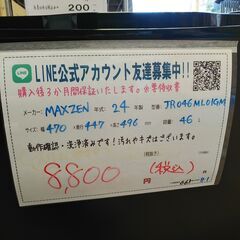 200
LINE公式アカウント友達募集中!!
購入後3か月間保証いたします。※要領収書
メーカー: MAXZEN 年式: 24年 型式: JR046ML01GM
サイズ: 幅 470 × 奥行 447 × 高さ 496 mm 容量: 46 L
動作確認・洗浄済みです!汚れやキズはございます。
(税抜き)
8,800 円 (税込)